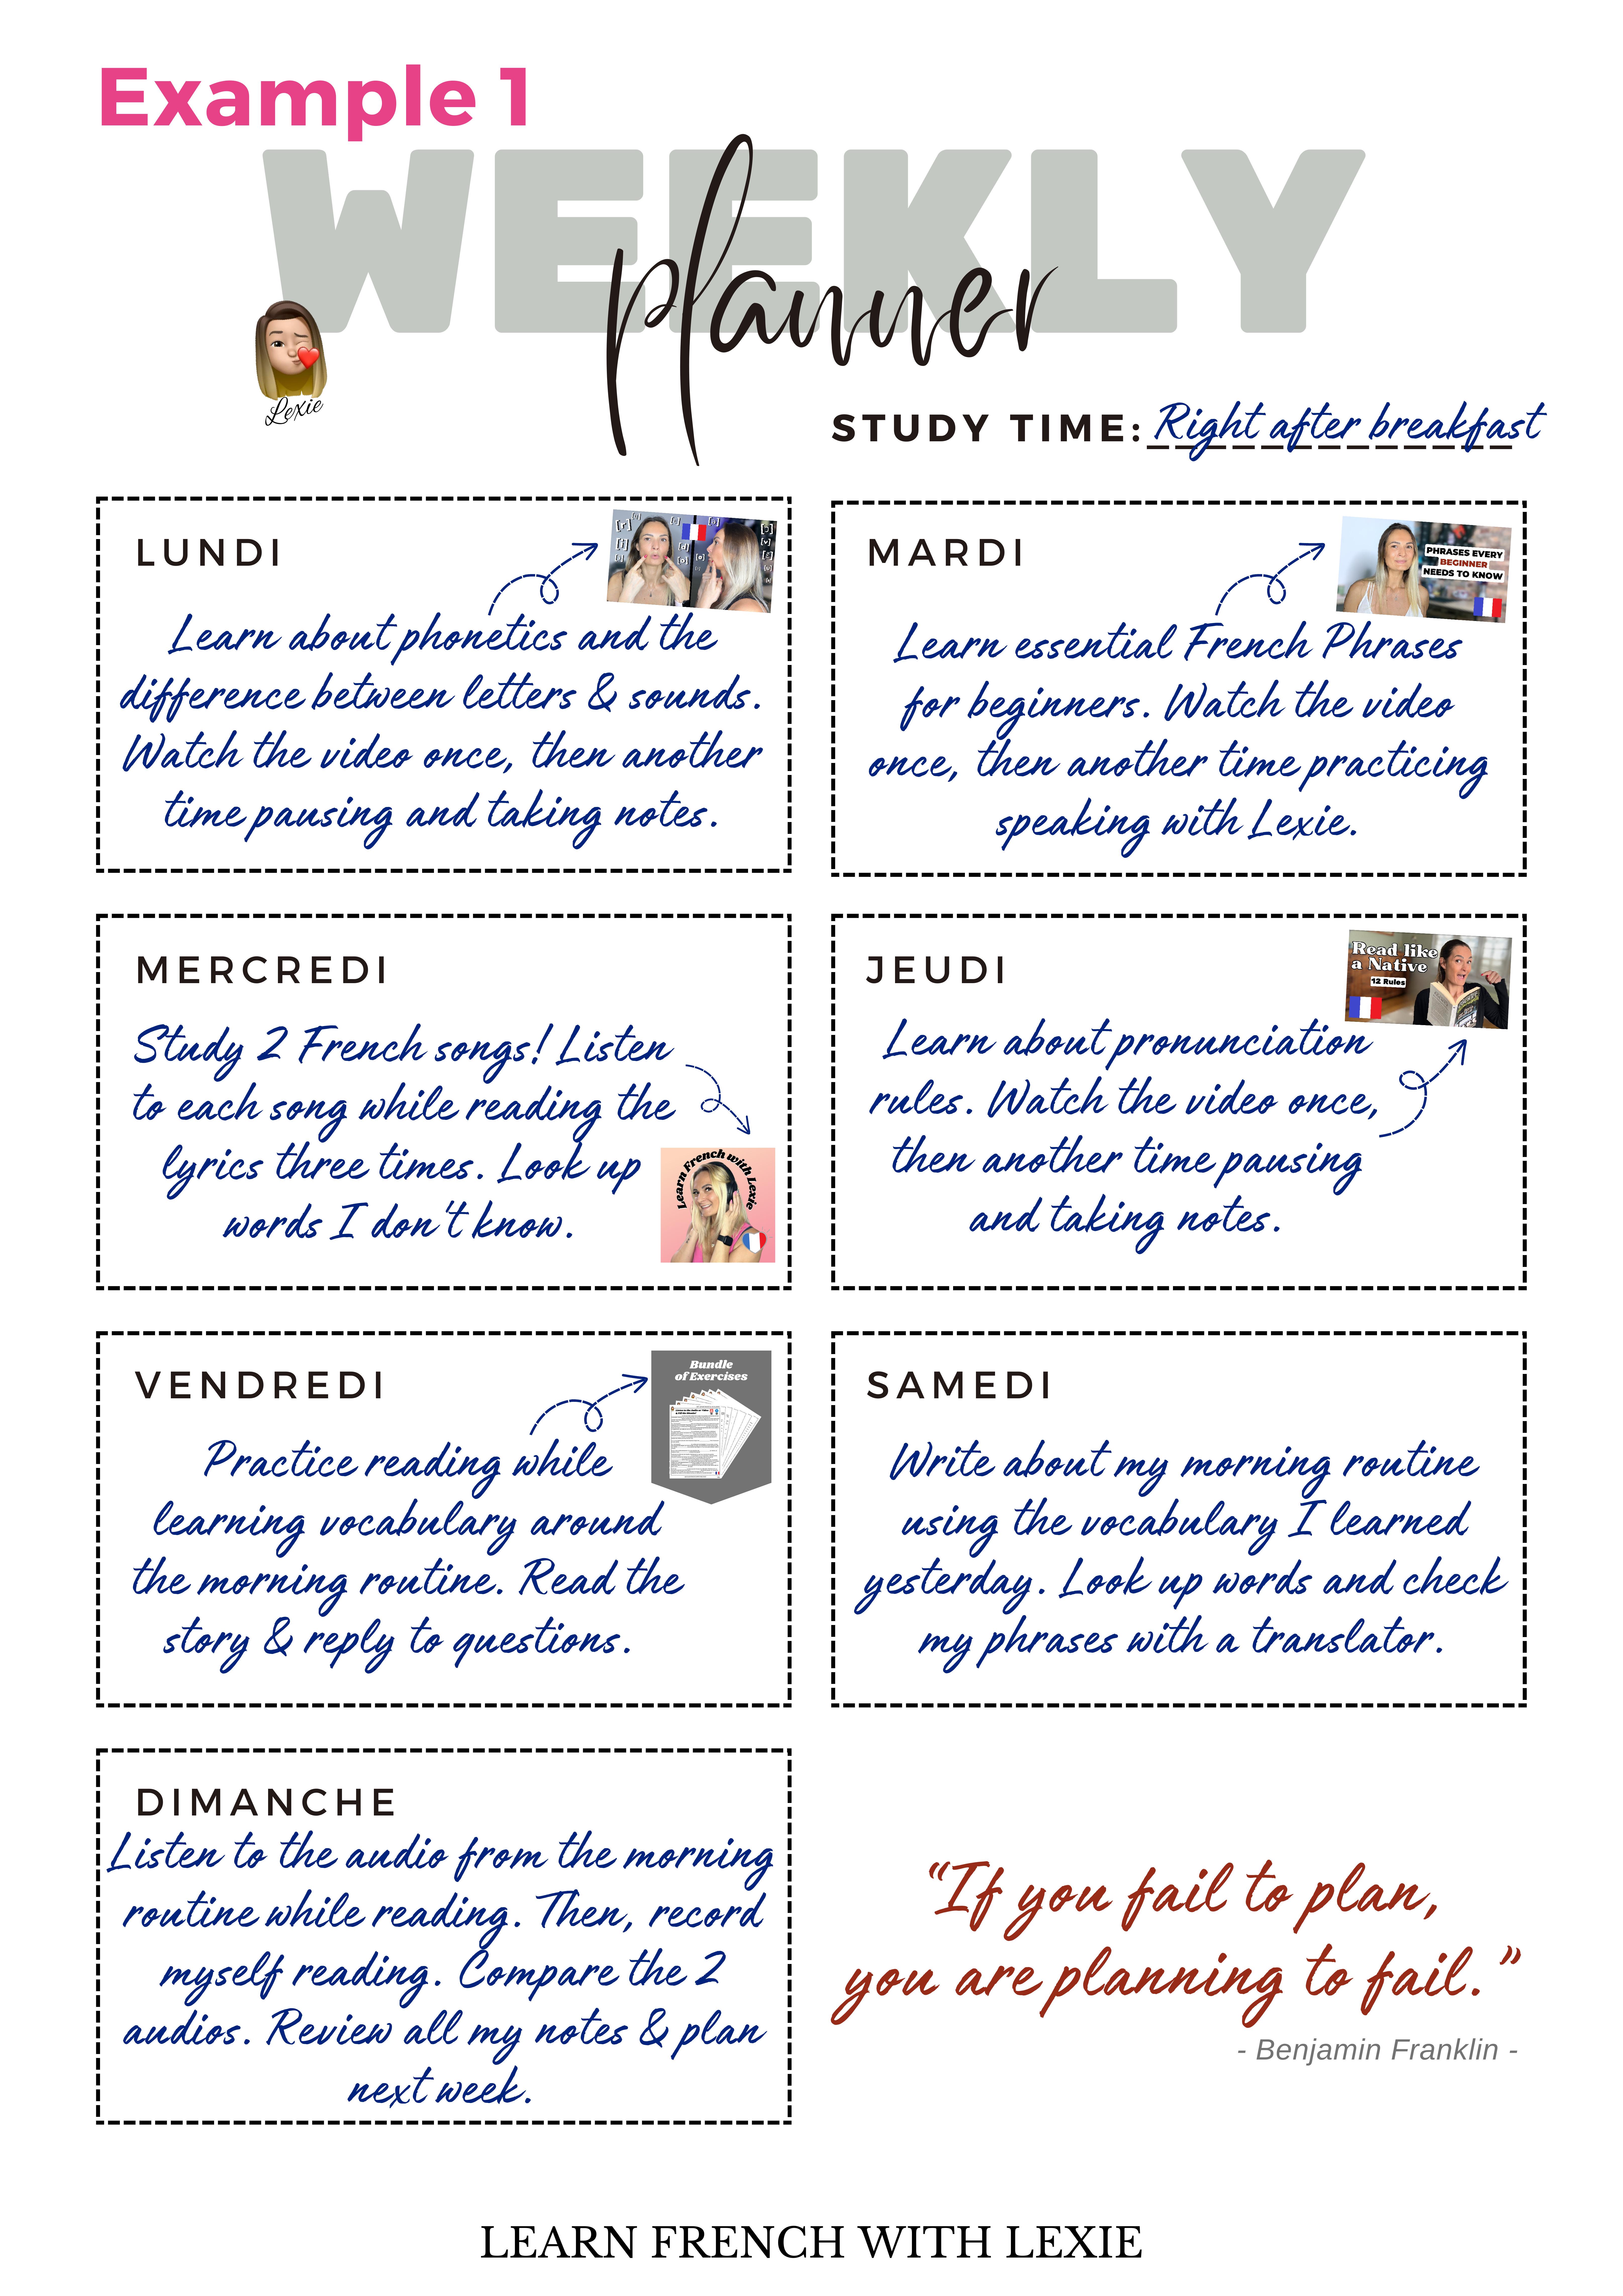 Example 1
WEEKLY
planner
Lexie
STUDY TIME: Right after breakfast
LUNDI
Learn about phonetics and the
difference between letters & sounds.
Watch the video once, then another
time pausing and taking notes.
MARDI
PHRASES EVERY
BEGINNER
NEEDS TO KNOW
Learn essential French Phrases
for beginners. Watch the video
once, then another time practicing
speaking with Lexie.
MERCREDI
Study 2 French songs! Listen
to each song while reading the
lyrics three times. Look up
words I don't know.
Learn French with Lexie
JEUDI
Read like
a Native
12 Rules
Learn about pronunciation
rules. Watch the video once,
then another time pausing
and taking notes.
VENDREDI
Bundle
of Exercises
Practice reading while
learning vocabulary around
the morning routine. Read the
story & reply to questions.
SAMEDI
Write about my morning routine
using the vocabulary I learned
yesterday. Look up words and check
my phrases with a translator.
DIMANCHE
Listen to the audio from the morning
routine while reading. Then, record
myself reading. Compare the 2
audios. Review all my notes & plan
next week.
“If you fail to plan,
you are planning to fail.”
- Benjamin Franklin -
LEARN FRENCH WITH LEXIE